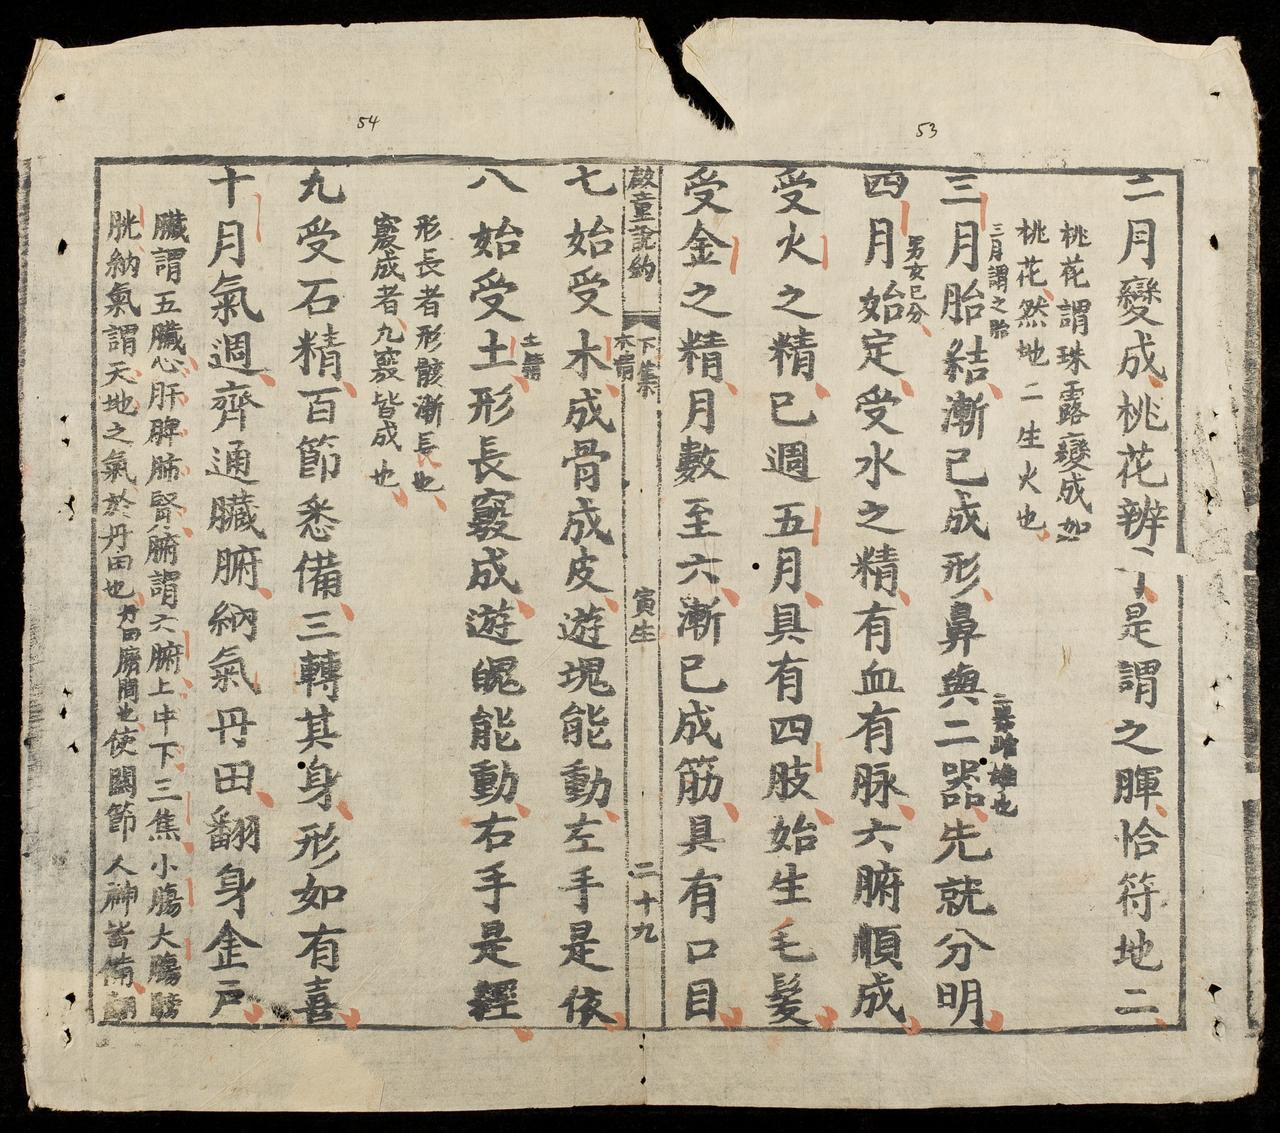 53
二月變成桃花辨 是謂之暉恰符地二
桃花謂珠露變成如
桃花然地二生火也
三月胎結漸已成形鼻與二器先就分明
三月謂之胎
四月始定受水之精有血有脉六腑順成
男女已分
受火之精已週五月具有四肢始生毛髮
受金之精月數至六漸已成筋具有口目
啟童說約
下集
寅生
二十九
54
七始受木成骨成皮遊塊能動左手是依
木精
八始受土形長竅成遊魄能動右手是經
土精
形長者形骸漸長也
竅成者九竅皆成也
九受石精百節悉備三轉其身形如有喜
十月氣週齊通臟腑納氣丹田翻身金戸
臟謂五臟心肝脾肺腎腑謂六腑上中下三焦小膓大膓膀
胱納氣謂天地之氣於丹田也丹田臍間也使關節人神皆備